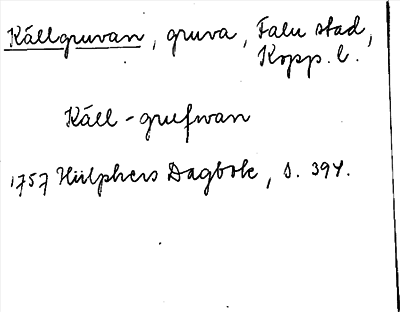 Källgruvan, gruva, Falu stad,
Kopp. l.
Käll-grufwan
1757 Hülphers Dagbok, s. 394.